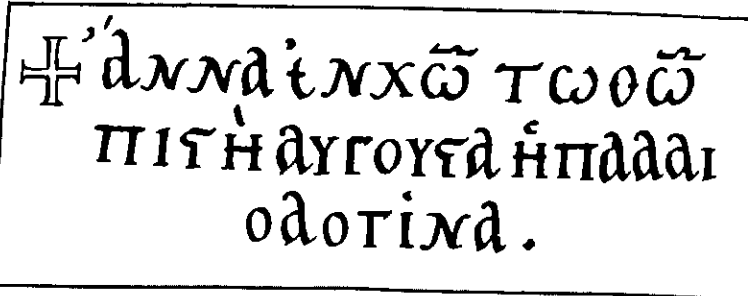 ✠ Ἄννα ἐν χω̃ τω θω̃
πιϛὴ αυγουϛα ἡ παλαι
ολογίνα.